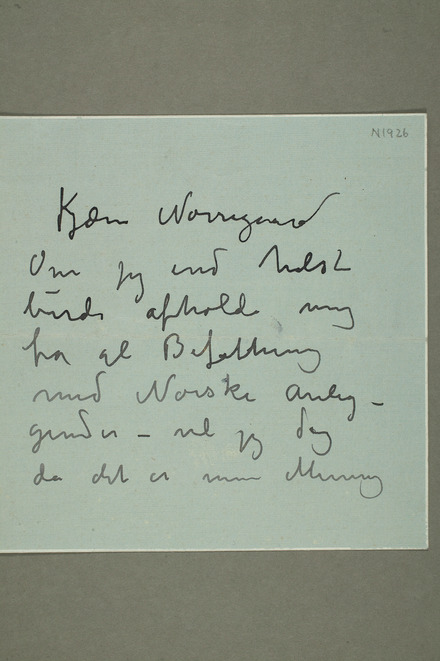 N1926
Kjære Nørregaard
Om jeg end helst
burde afholde mig
fra al Befatning
med Norske Anlig-
gender – vil jeg dog
da det er min Mening